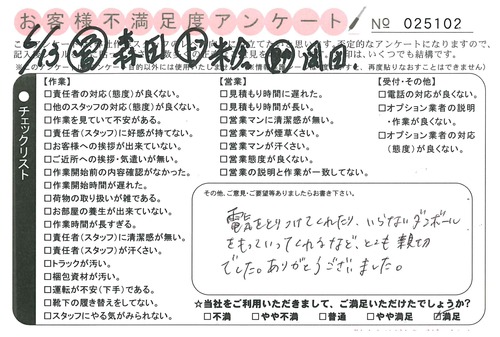 お客様不満足度アンケート
№ 025102
チェックリスト
【作業】
□責任者の対応(態度)が良くない。
□他のスタッフの対応(態度)が良くない。
□作業を見ていて不安がある。
□責任者(スタッフ)に好感が持てない。
□お客様への挨拶が出来ていない。
□ご近所への挨拶・気遣いが無い。
□作業開始前の内容確認がなかった。
□作業開始時間が遅れた。
□荷物の取り扱いが雑である。
□お部屋の養生が出来ていない。
□作業時間が長すぎる。
□責任者(スタッフ)に清潔感が無い。
□責任者(スタッフ)が汗くさい。
□トラックが汚い。
□梱包資材が汚い。
□運転が不安(下手)である。
□靴下の履き替えをしてない。
□スタッフにやる気がみられない。
【営業】
□見積もり時間に遅れた。
□見積もり時間が長い。
□営業マンに清潔感が無い。
□営業マンが煙草くさい。
□営業マンが汗くさい。
□営業態度が良くない。
□営業の説明と作業が一致してない。
【受付・その他】
□電話の対応が良くない。
□オプション業者の説明
・作業が良くない。
□オプション業者の対応
(態度)が良くない。
その他、ご意見・ご要望等ありましたらお書き下さい。
電気をとりつけてくれたり、いらないダンボール
をもっていってくれるなど、とても親切
でした。ありがとうございました。
☆当社をご利用いただきまして、ご満足いただけたでしょうか?
□不満 □やや不満 □普通 □やや満足 □満足